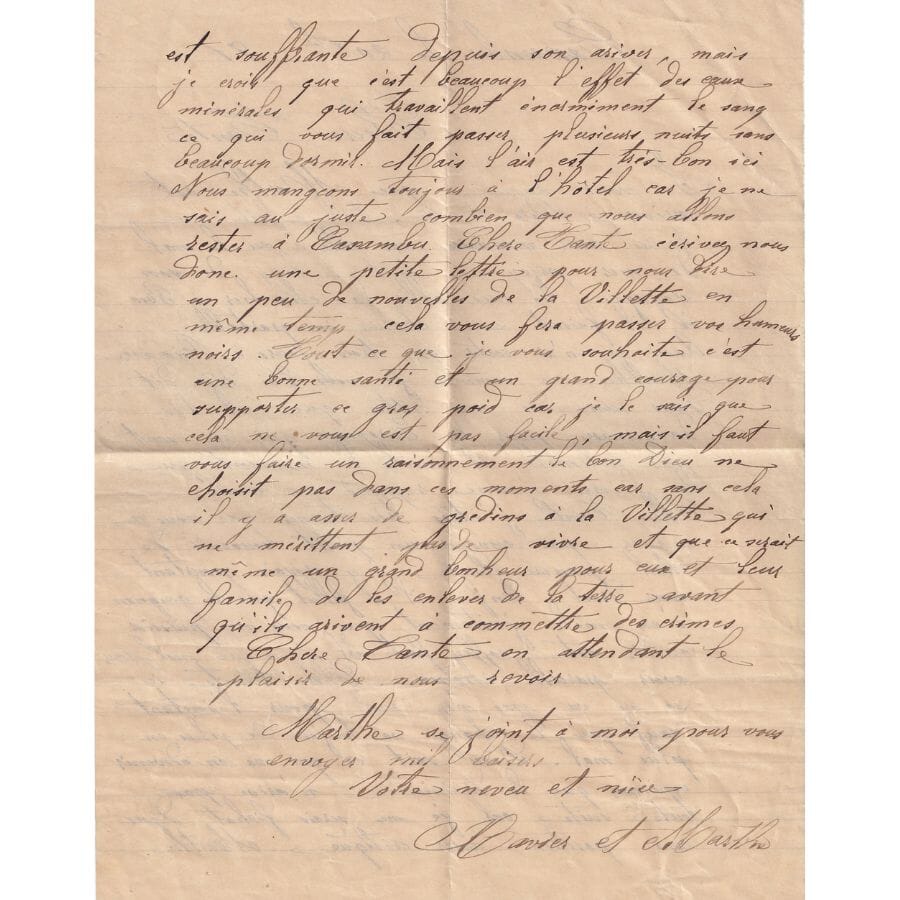 est souffrante depuis son ariver, mais
je crois que c'est beaucoup l'effet des eaux
minérales qui travaillent énormiment le sang
ce qui vous fait passer plusieurs nuits sans
beaucoup dormir. Mais l'air est très-bon ici
Nous mangeons toujour à l'hôtel car je ne
sais au juste combien que nous allons
rester à Caxambu. Chere Tante écrivez nous
donc une petite lettre pour nous dire
un peu de nouvelles de la Villette en
même temp cela vous fera passer vos humeurs
noirs. Tout ce que je vous souhaite c'est
une bonne santé et un grand courage pour
supporter ce gros poid car je le sais que
cela ne vous est pas facile, mais il faut
vous faire un raisonnement le bon Dieu ne
choisit pas dans ces moments car sans cela
il y a asser de gredins à la Villette qui
ne mérittent pas de vivre et que ce serait
même un grand bonheur pour eux et leur
famile de les enlever de la terre avant
qu'ils arivent à commettre des crimes
Chere Tante en attendant le
plaisir de nous revoir
Marthe se joint à moi pour vous
envoyer mil baisers.
Votre neveu et nièce
Xavier et Marthe